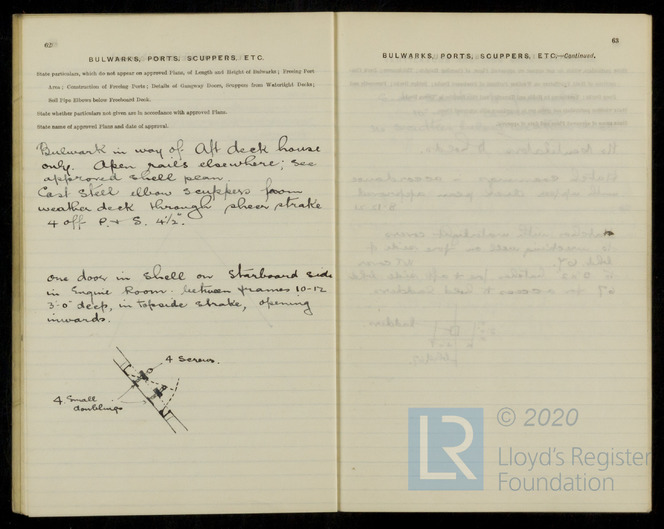 62
BULWARKS, PORTS, SCUPPERS, ETC.
State particulars, which do not appear on approved Plans, of Length and Height of Bulwarks; Freeing Port
Area; Construction of Freeing Ports; Details of Gangway Doors, Scuppers from Watertight Decks;
Soil Pipe Elbows below Freeboard Deck.
State whether particulars not given are in accordance with approved Plans.
State name of approved Plans and date of approval.
Bulwark in way of Aft deck house
only. Open rails elsewhere; see
approved shell plan.
Cast steel elbow scuppers from
weather deck through sheer strake
4 off P. & S. 4½".
One door in shell on Starboard side
in Engine Room between frames 10-12
3'-0" deep, in topside strake, opening
inwards.
4 screws.
4 small
doublings
63
BULWARKS, PORTS, SCUPPERS, ETC.—Continued.
LR
© 2020
Lloyd's Register
Foundation